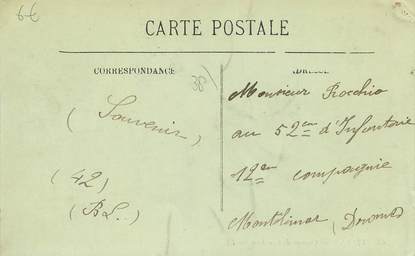 6€
CARTE POSTALE
CORRESPONDANCE
ADRESSE
38
(Souvenir)
(42)
(BL.)
Monsieur Rocchio
au 52em d'Infanterie
12em compagnie
Montelimar (Drome)